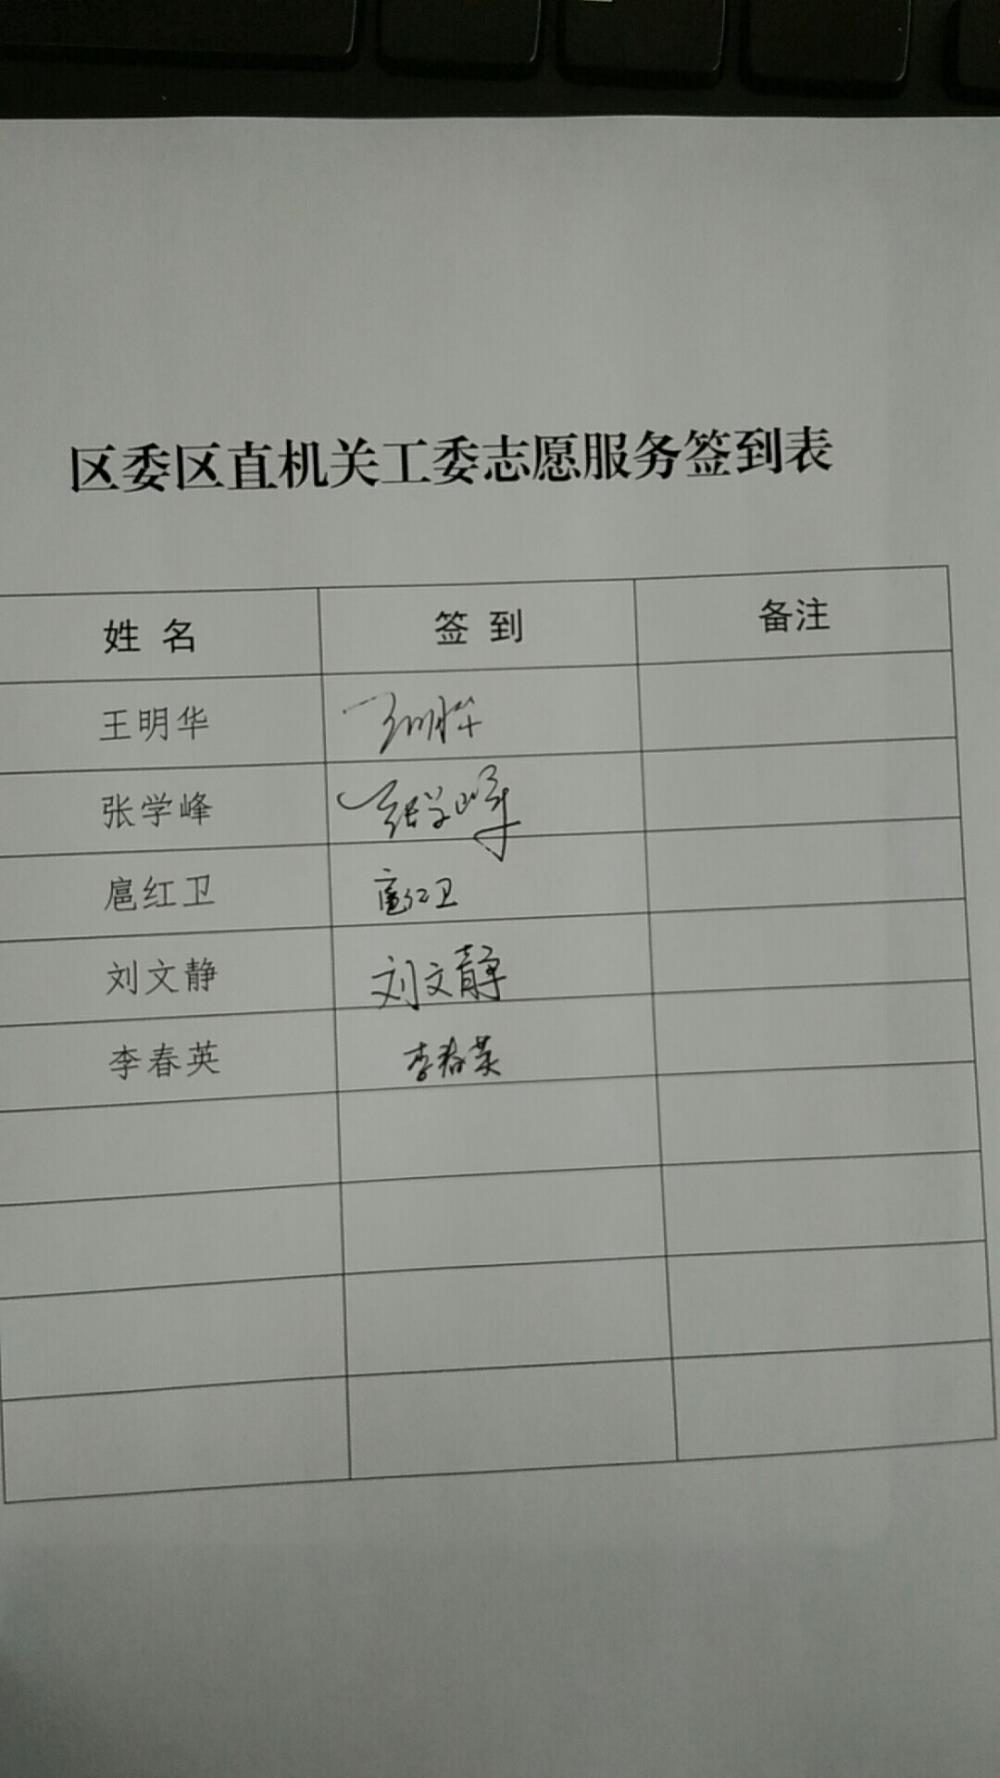 区委区直机关工委志愿服务签到表
姓 名 签 到 备注
王明华 王明华
张学峰 张学峰
扈红卫 扈红卫
刘文静 刘文静
李春英 李春英